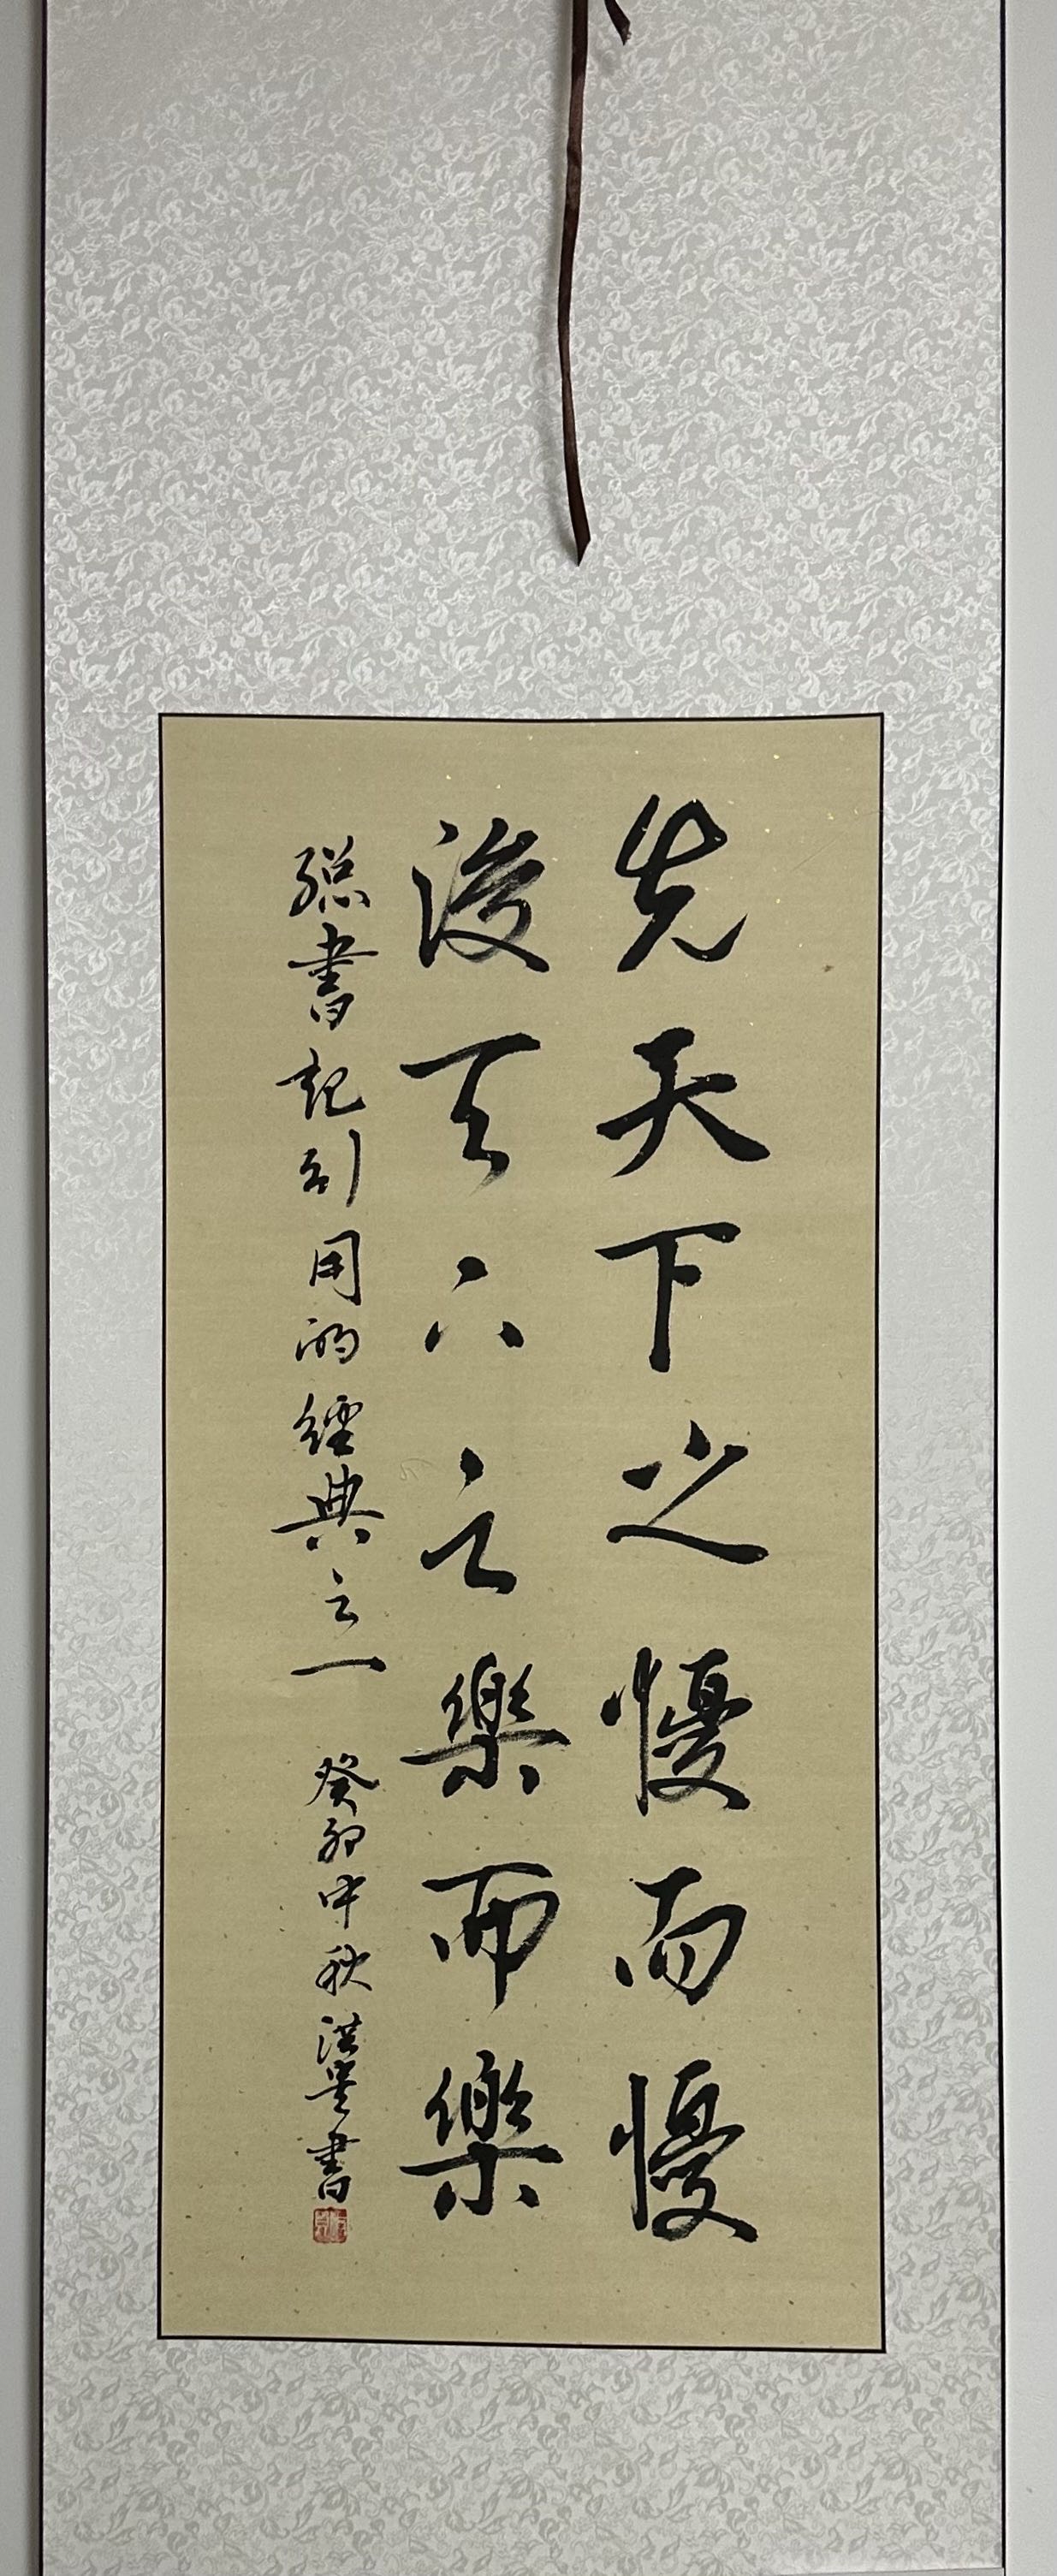 先天下之憂而憂
後天下之樂而樂
總書記引用的經典之一 癸卯中秋洪昊書